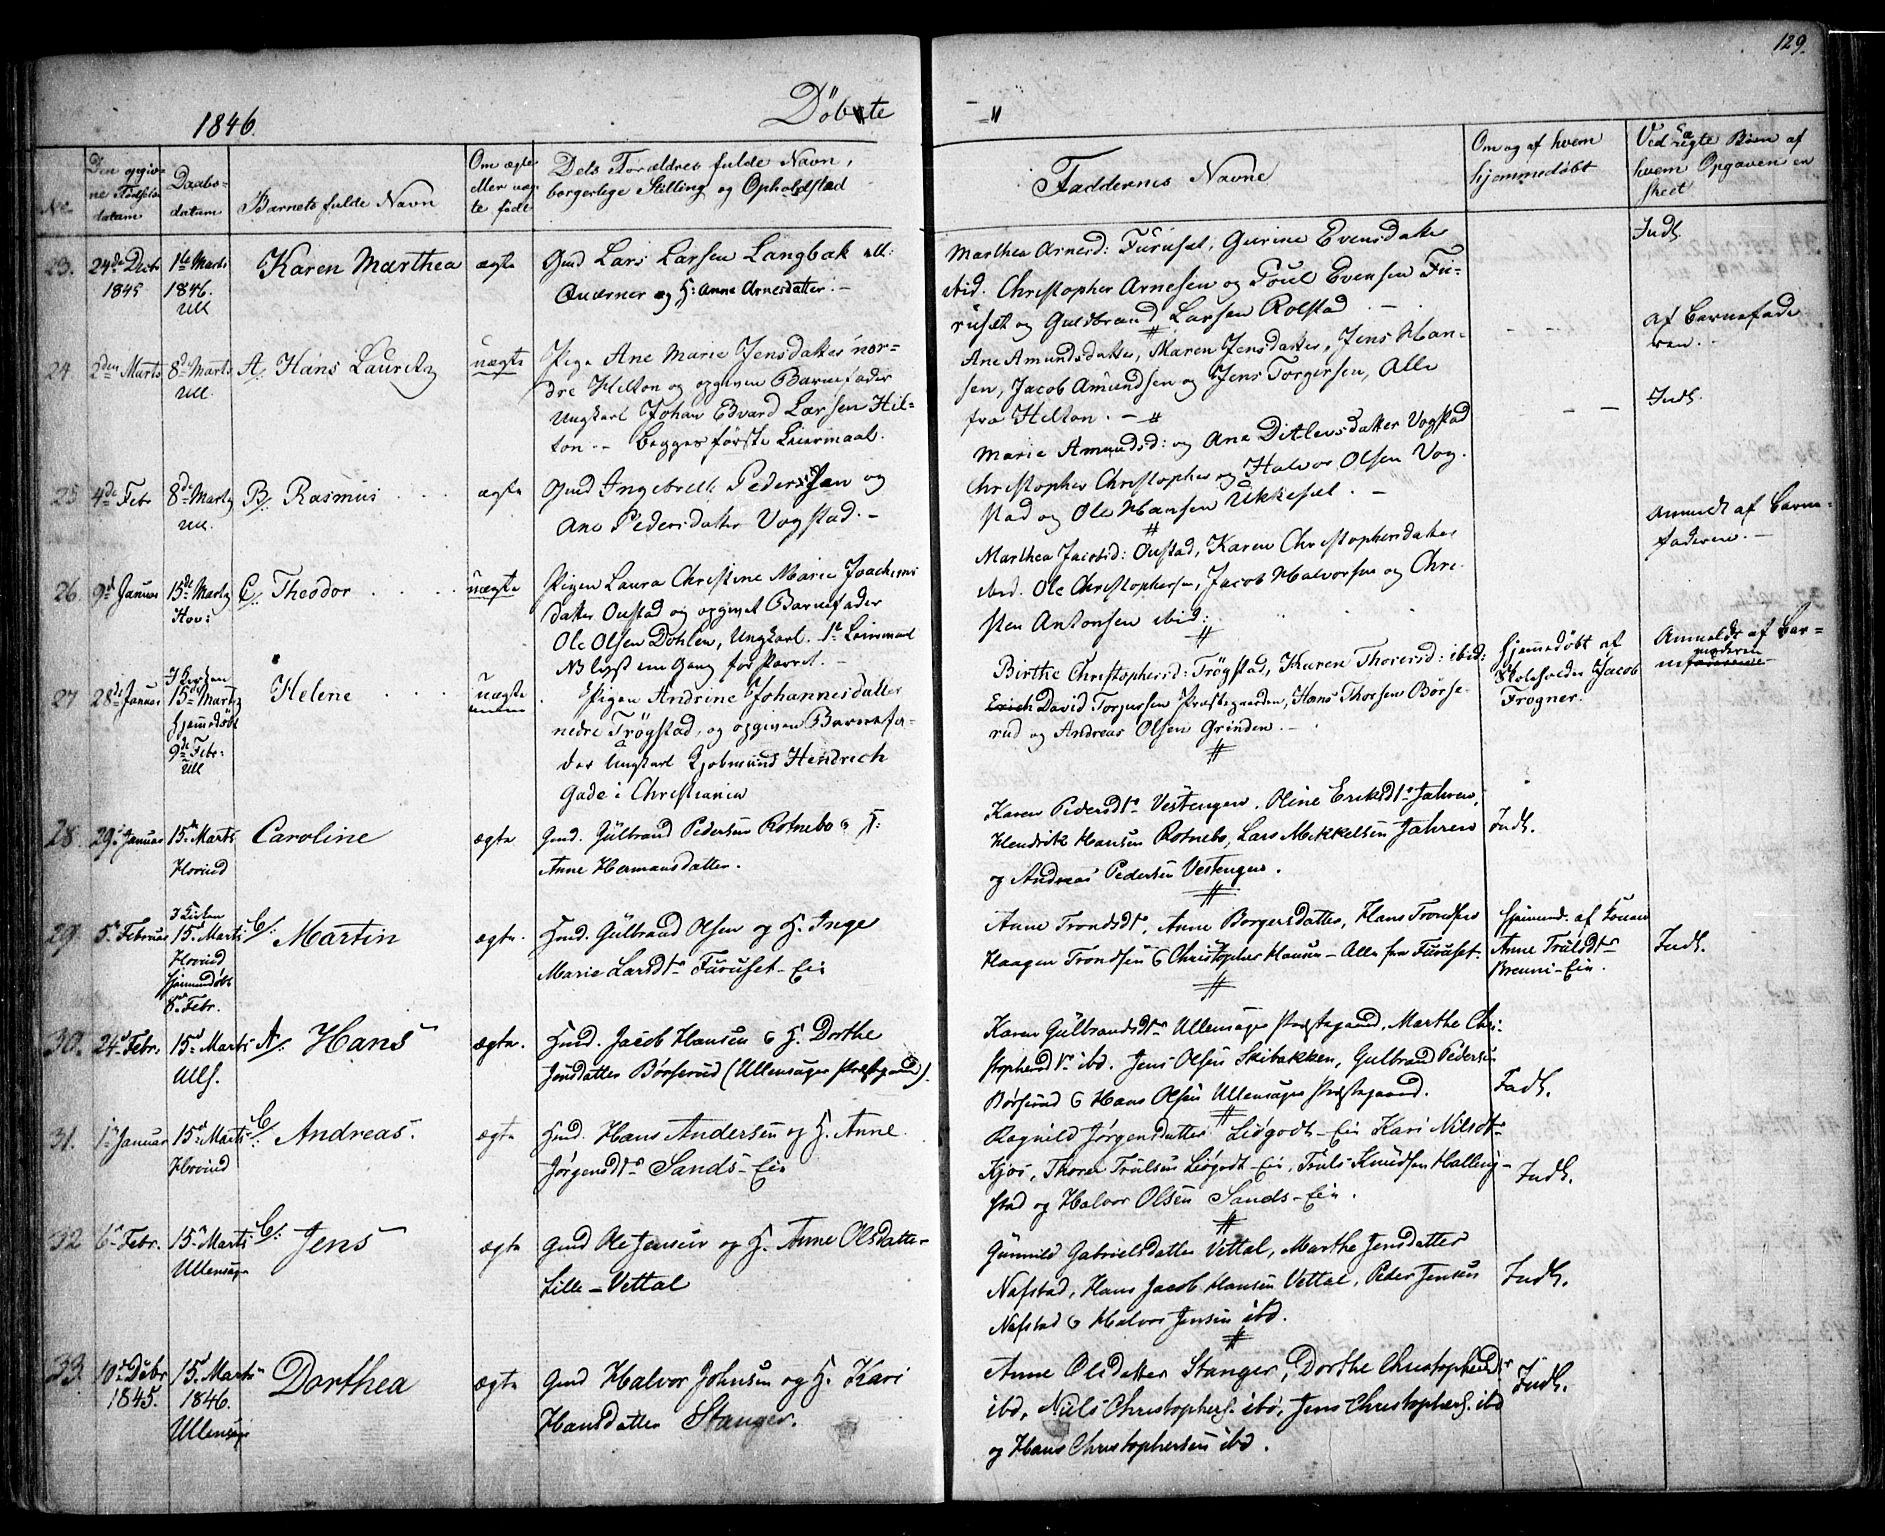 129.
1846.
Döbte
No.
Den opgivne Födselsdatum
Daabsdatum
Barnets fulde Navn
Om ægte eller uægte født
Dets Forældres fulde Navn, borgerlige Stilling og Opholdsted
Faddernes Navne
Om og af hvem hjemmedøbt
Ved uægte Børn af hvem Opgaven er skeet
23. 24de Decbr 1845
1ste Marts 1846. Ull
Karen Marthea
ægte
Gmd Lars Larsen Langbak
og H: Anne Arnesdatter. –
Marthea Arnesd: Furuset, Gurine Evensdatter
ibid. Christopher Arnesen og Poul Evensen Fu-
ruset og Guldbrand Larsen Rolstad
Indh
24 2den Marts
8de Marts Ull.
A/: Hans Lauritz
uægte
Pige Ane Marie Jensdatter nor-
dre Hilton og opgiven Barnefader
Ungkarl Johan Edvard Larsen Hil-
ton. – begges förste Leiermaal.
Ane Amundsdatter, Maren Jensdatter, Jens Han-
sen, Jacob Amundsen og Jens Torgersen, Alle
fra Hilton. –
af Barnefade
ren. –
25 4de Febr
8de Marts Ull.
B/: Rasmus
ægte
Gmd Ingebrett Pedersen og
Ane Pedersdatter Vogstad. –
Marie Amundsd: og Ane Ditlevsdatter Vogstad
Christopher Christophers og Halvor Olsen Vog-
stad og Ole Hansen Ukkestad. –
Indh.
26. 9de Januar
15de Marts Hov:
C/: Theodor
uægte
Pigen Laura Christine Marie Joachims
datter Oustad og opgivet Barnefader
Ole Olsen Dohlen, Ungkarl. 1ste Leiermaal
NB lyst een Gang for Parret. –
Marthea Jacobsd: Oustad, Karen Christophersdatter
ibid. Ole Christophersen, Jacob Halvorsen og Chri-
sten Antonsen ibid:
Anmeldt af Barne-
faderen. –
27 28de Januar
I Kirken 15de Marts
hjemmedöbt 9de Febr: Ull
Helene
uægte
Pigen Andrine Johannesdatter
nedre Trögstad, og opgiven Barnefa-
der Ungkarl Hendrich
Gade i Christiania
Birthe Christophersd: Trögstad, Karen Thoresd: ibid:
Erich David Torgersen Præstegaarden, Hans Thorsen Börse-
rud og Andreas Olsen Grinden. –
hjemmedöbt af
Skoleholder Jacob
Frogner.
Anmeldt af Bar-
nemoderen
28. 29de Januar
15de Marts Hovind
Caroline
ægte
Gmd. Gulbrand Pedersen Rotnebo & H:
Anne Hermansdatter.
Karen Pedersdtr Vestengen, Oline Eriksdtr Jahren,
Hendrik Hansen Rotnebo, Lars Mikkelsen Jahren
og Andreas Pedersen Vestengen.
Indh.
29. 5te Februar
I Kirken 15de Marts Hovind
hjemmedöbt 8de Febr.
C/: Martin
ægte.
Hmd. Gulbrand Olsen og H. Inge
Marie Larsdtr Furuset-Eie
Anne Trondsdtr, Anne Borgersdatter, Hans Trondsen
Haagen Trondsen & Christopher Hansen – Alle fra Furuset.
hjemmed. af Konen
Anne Trulsdtr
Brenni-Eie.
Indh.
30. 24de Febr.
15de Marts Ulls.
A/: Hans
ægte.
Hmd. Jacob Hansen & H. Dorthe
Jensdatter Børserud (Ullensager Præstegaard).
Karen Gulbrandsdtr Ullensager Præstegaard, Marthe Chri-
stophersdtr ibd. Jens Olsen Skibakken, Gulbrand Pedersen
Børserud & Hans Olsen Ullensager Præstegaard.
Indh.
31. 1ste Januar
15de Marts Hovind
C/: Andreas.
ægte
Hmd. Hans Andersen og H. Anne
Jørgensdtr Sands-Eie
Ragnild Jørgensdatter Liøgodt-Eie Kari Nilsdtr
Kjos, Thorer Trulsen Liøgodt-Eie, Truls Knudsen Halleng-
stad og Halvor Olsen Sands-Eie.
Indh.
32 6te Febr.
15de Marts Ullensager
C/: Jens
ægte
Gmd Ole Jensen og H. Anne Olsdatter
Lille-Vettal
Gunnild Gabrielsdatter Vettal, Marthe Jensdatter
Nafstad, Hans Jacob Hansen Vettal, Peder Jensen
Nafstad & Halvor Jensen ibd.
Indh.
33. 10de Decbr 1845.
15de Marts 1846. Ullensager
Dorthea
ægte
Gmd Halvor Johnsen og H. Kari
Hansdatter Stanger.
Anne Olsdatter Stanger, Dorthe Christophersdtr
ibd, Niels Christophers. ibd, Jens Christophers. ibd
og Hans Christophersen ibd.
Indh.